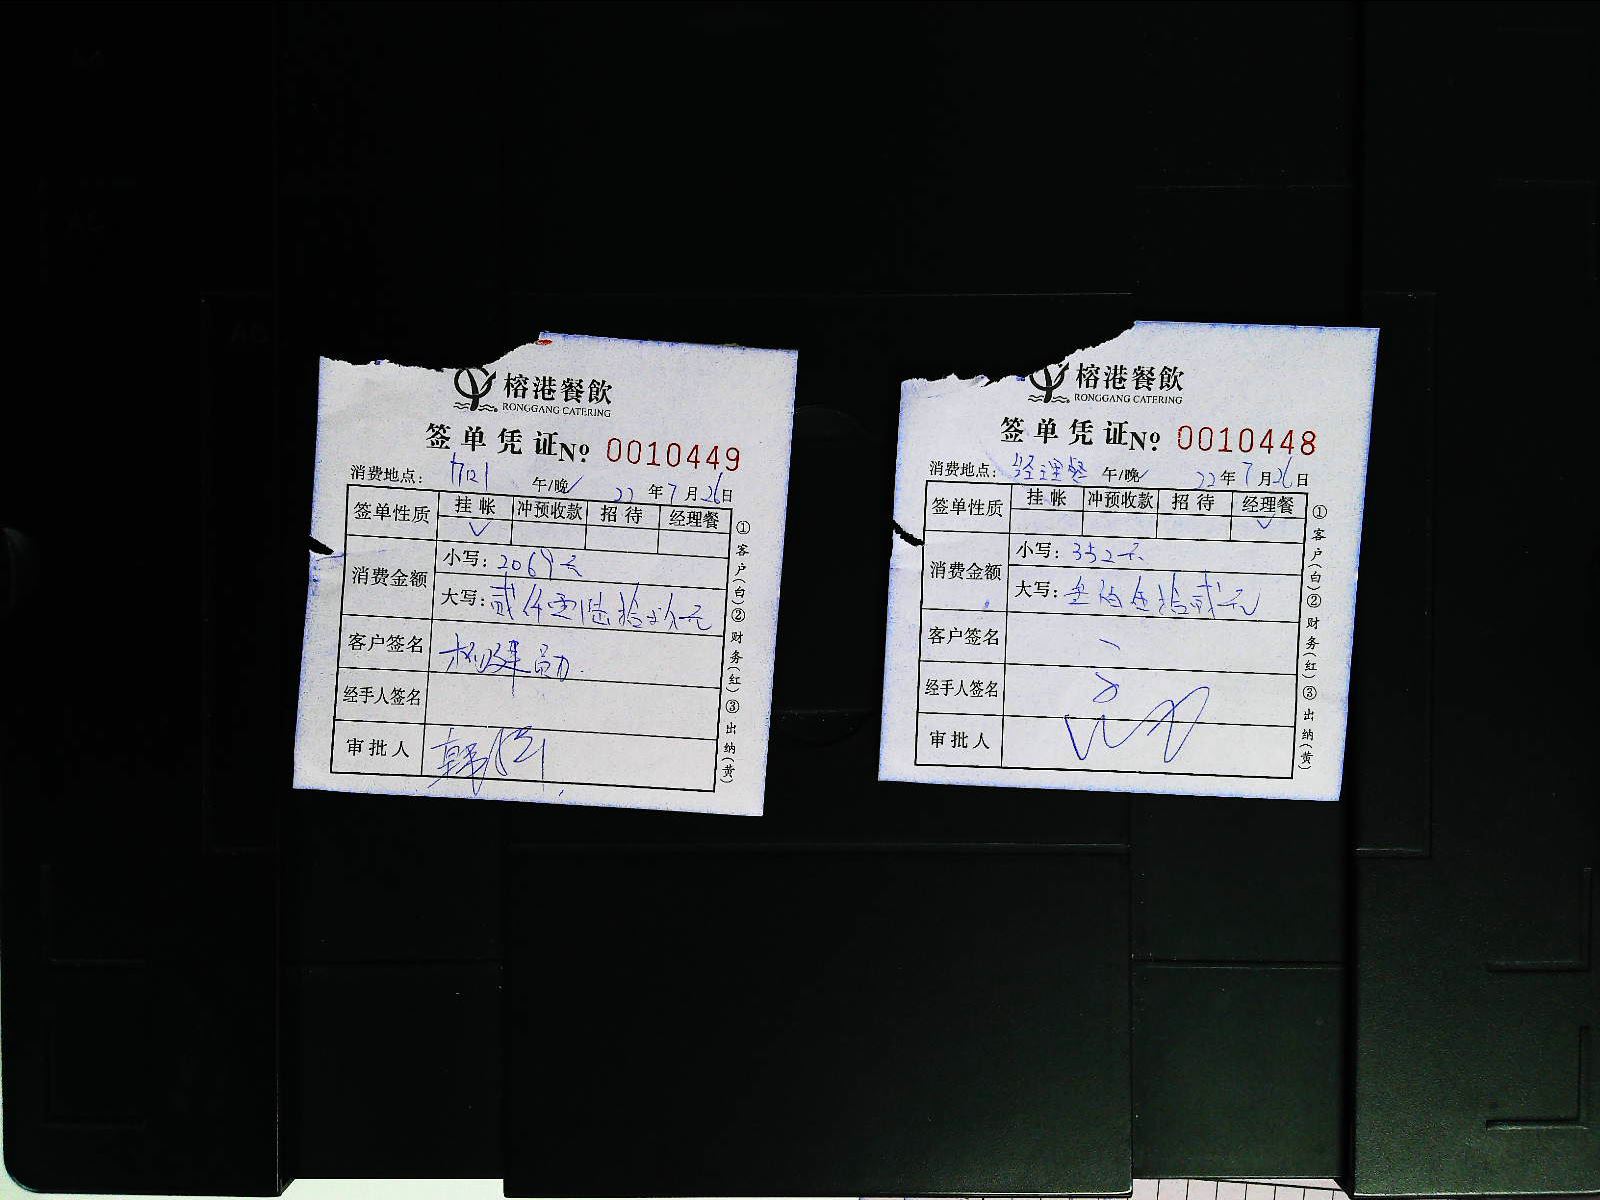 榕港餐飲
RONGGANG CATERING
签单凭证No 0010449
消费地点: 午/晚✓ 22年7月26日
签单性质 挂帐 冲预收款 招待 经理餐
✓
消费金额 小写: 2069元
大写: 贰仟零陆拾玖元
客户签名
经手人签名
审批人
①客户(白)②财务(红)③出纳(黄)
榕港餐飲
RONGGANG CATERING
签单凭证No 0010448
消费地点: 经理餐 午/晚✓ 22年7月26日
签单性质 挂帐 冲预收款 招待 经理餐
✓
消费金额 小写: 352元
大写: 叁佰伍拾贰元
客户签名
经手人签名
审批人
①客户(白)②财务(红)③出纳(黄)